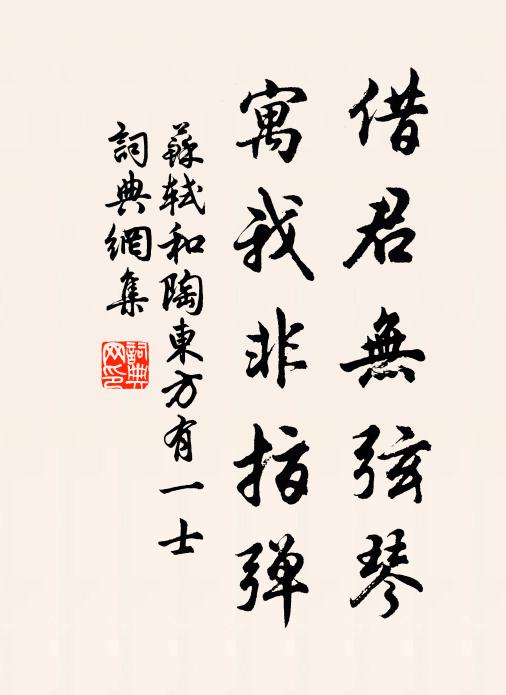 借君無弦琴
寓我非指弹
蘇軾和陶東方有一士
詞典網集
詞典
网印